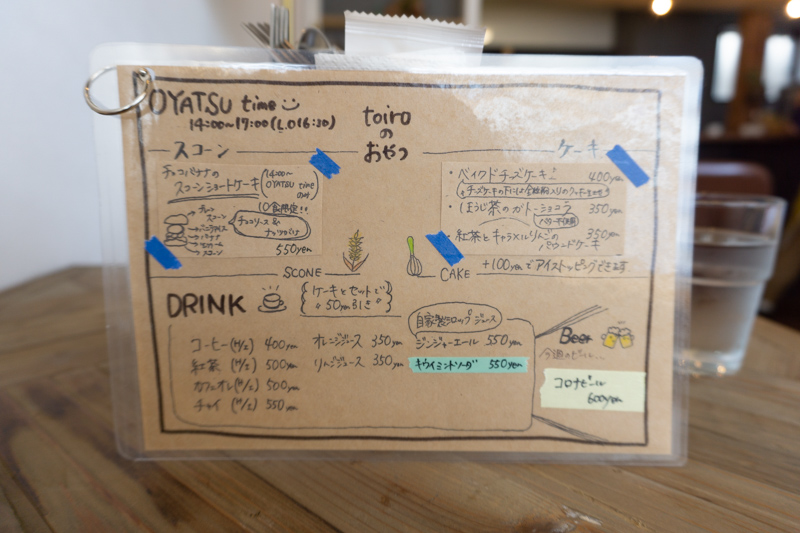 OYATSU time
14:00~17:00(L.O16:30)
toiroの
おやつ
スコーン
チョコバナナの
スコーンショートケーキ
14:00~
OYATSU time
のみ
10食限定!!
プレーン
スコーン
バナナ
スコーン
チョコソース &
550yen
SCONE
ケーキ
・ベイクドチーズケーキ 400yen
・ほうじ茶のガトーショコラ 350yen
紅茶とキャラメルりんごの 350yen
パウンドケーキ
CAKE
+100yenでアイストッピングできます
DRINK
ケーキとセットで
"50yen引き"
コーヒー(H/I) 400yen
紅茶 (H/I) 500yen
カフェオレ(H/I) 500yen
チャイ (H/I) 550yen
オレンジジュース 350yen
りんごジュース 350yen
自家製シロップジュース
ジンジャーエール 550yen
キウイミントソーダ 550yen
Beer
今週のビール...
コロナビール
600yen